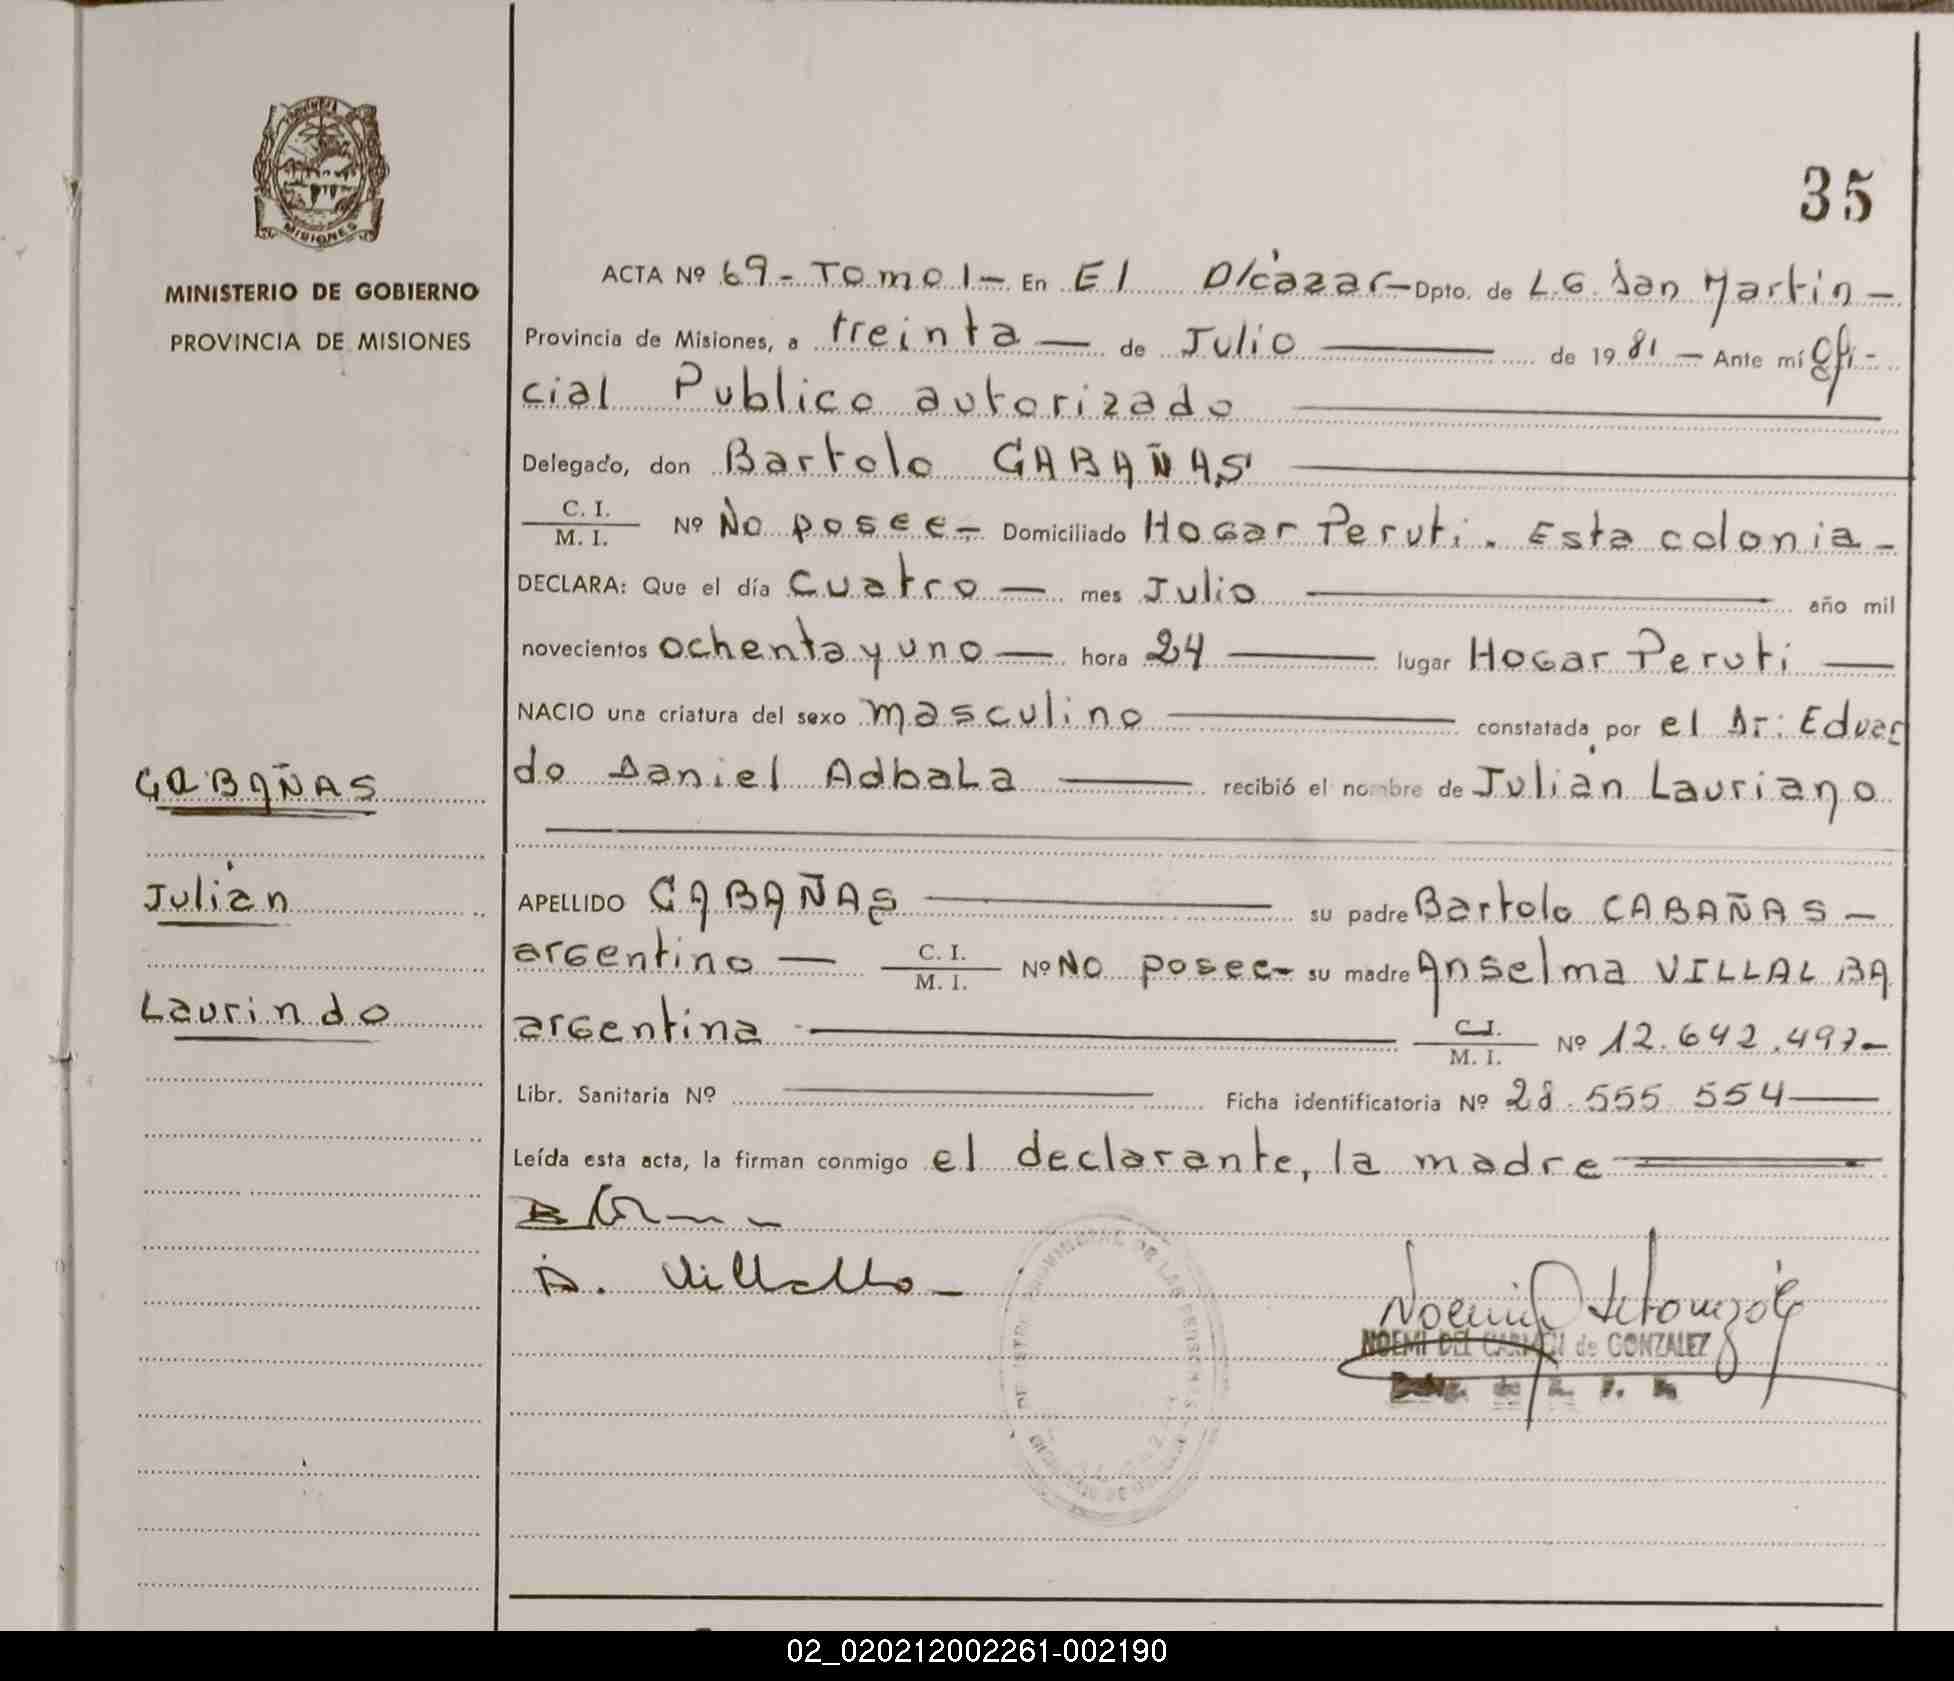 PROVINCIA
MISIONES
MINISTERIO DE GOBIERNO
PROVINCIA DE MISIONES
35
ACTA Nº 69.- Tomo I - En El Alcázar - Dpto. de L.G. San Martín -
Provincia de Misiones, a treinta — de Julio — de 19 81 - Ante mí Ofi-
cial Publico autorizado —
Delegado, don Bartolo CABAÑAS —
C. I.
M. I.
Nº No posee - Domiciliado Hogar Peruti. Esta colonia -
DECLARA: Que el día cuatro — mes Julio — año mil
novecientos ochenta y uno — hora 24 — lugar Hogar Peruti —
NACIO una criatura del sexo masculino — constatada por el Dr: Eduar
do Daniel Adbala — recibió el nombre de Julián Lauriano
CABAÑAS
Julián
Laurindo
APELLIDO CABAÑAS — su padre Bartolo CABAÑAS -
argentino — C. I. M. I. Nº No posee - su madre Anselma VILLALBA
argentina — C. I. M. I. Nº 12.642.497-
Libr. Sanitaria Nº — Ficha identificatoria Nº 28.555 554 —
Leída esta acta, la firman conmigo el declarante, la madre —
A. Villalba -
PROVINCIAL DE LAS PERSONAS
NOEMI DEL CARMEN de GONZALEZ
02_020212002261-002190